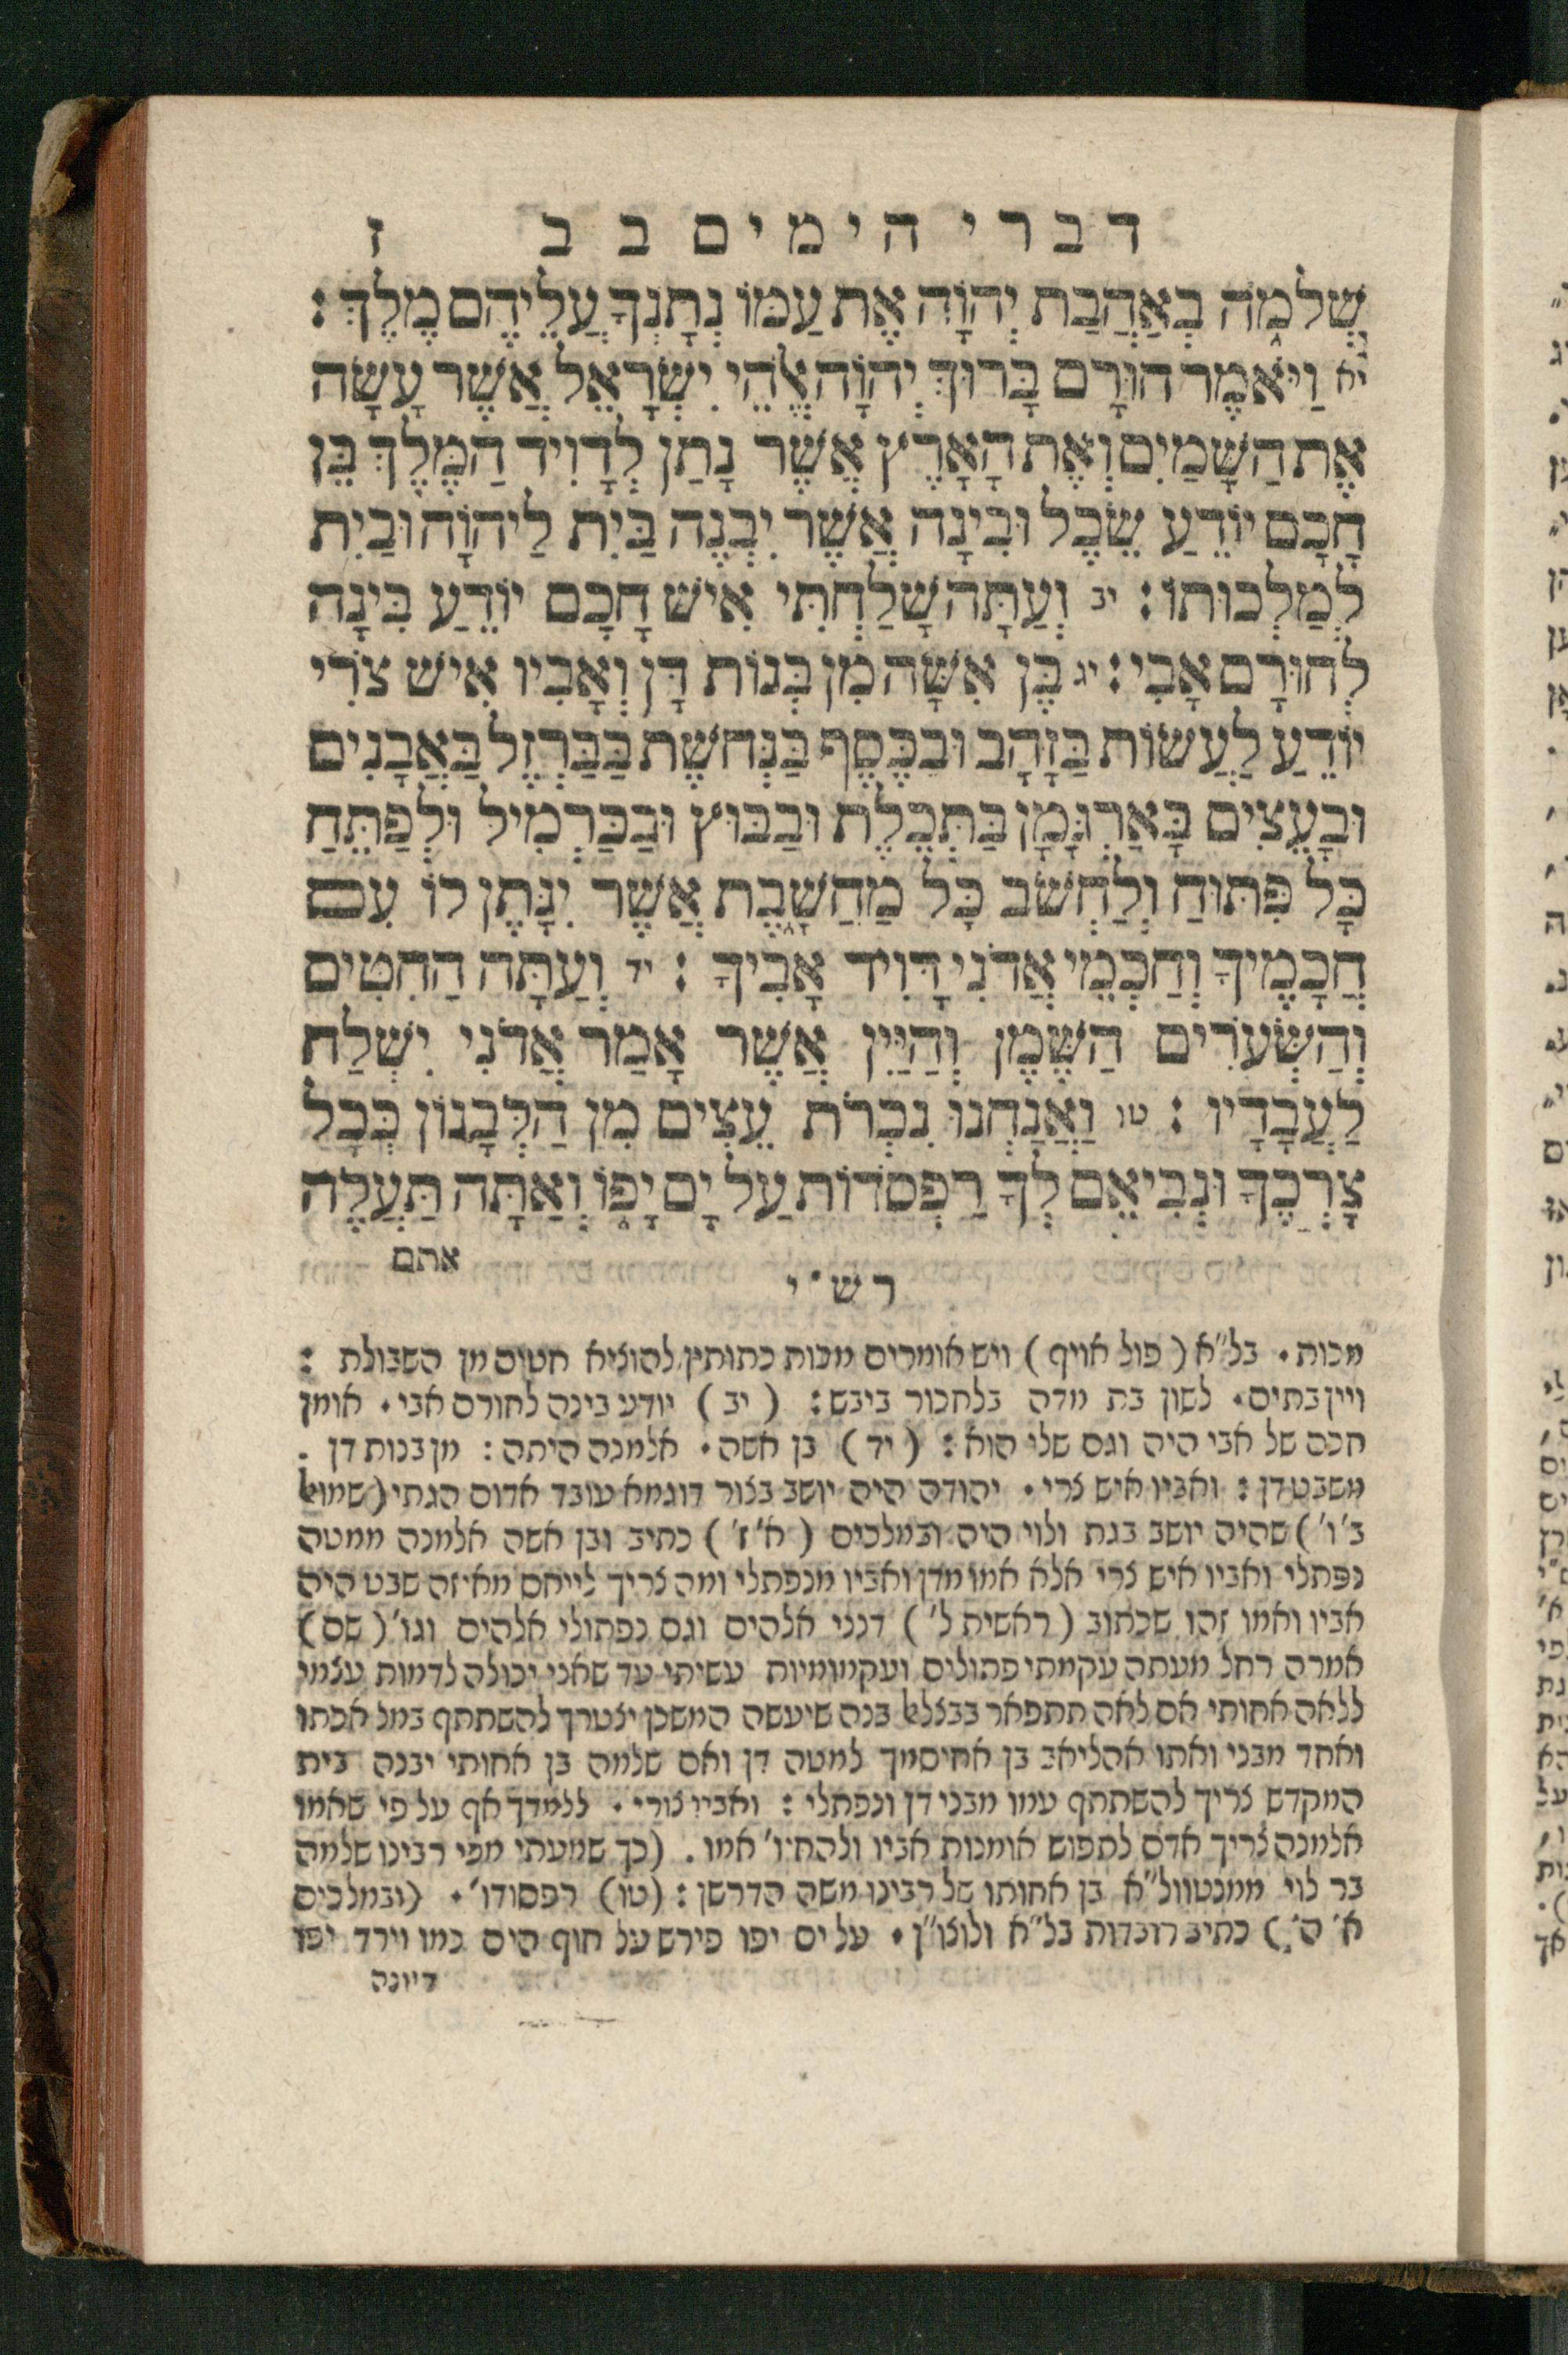 דברי הימים ב ב ז
שְׁלֹמֹה בְּאַהֲבַת יְהוָֹה אֶת עַמּוֹ נְתָנְךָ עֲלֵיהֶם מֶלֶךְ :
יא וַיֹּאמֶר חוּרָם בָּרוּךְ יְהוָֹה אֱלֹהֵי יִשְׂרָאֵל אֲשֶׁר עָשָׂה
אֶת הַשָּׁמַיִם וְאֶת הָאָרֶץ אֲשֶׁר נָתַן לְדָוִיד הַמֶּלֶךְ בֵּן
חָכָם יוֹדֵעַ שֵׂכֶל וּבִינָה אֲשֶׁר יִבְנֶה בַּיִת לַיהוָֹה וּבַיִת
לְמַלְכוּתוֹ : יב וְעַתָּה שָׁלַחְתִּי אִישׁ חָכָם יוֹדֵעַ בִּינָה
לְחוּרָם אָבִי : יג בֶּן אִשָּׁה מִן בְּנוֹת דָּן וְאָבִיו אִישׁ צֹרִי
יוֹדֵעַ לַעֲשׂוֹת בַּזָּהָב וּבַכֶּסֶף בַּנְּחֹשֶׁת בַּבַּרְזֶל בַּאֲבָנִים
וּבָעֵצִים בָּאַרְגָּמָן בַּתְּכֵלֶת וּבַבּוּץ וּבַכַּרְמִיל וּלְפַתֵּחַ
כָּל פִּתּוּחַ וְלַחְשֹׁב כָּל מַחֲשָׁבֶת אֲשֶׁר יִנָּתֶן לוֹ עִם
חֲכָמֶיךָ וְחַכְמֵי אֲדֹנִי דָּוִיד אָבִיךָ : יד וְעַתָּה הַחִטִּים
וְהַשְּׂעֹרִים הַשֶּׁמֶן וְהַיַּיִן אֲשֶׁר אָמַר אֲדֹנִי יִשְׁלַח
לַעֲבָדָיו : טו וַאֲנַחְנוּ נִכְרֹת עֵצִים מִן הַלְּבָנוֹן כְּכָל
צָרְכֶּךָ וּנְבִיאֵם לְךָ רַפְסֹדוֹת עַל יָם יָפוֹ וְאַתָּה תַּעֲלֶה
אתם
רש"י
מכות • בל"א (פול אויף) ויש אומרים מכות כתותין להוציא חטים מן השבולת :
ויין בתים • לשון בת מדה בלחכור ביבש : (יב) יודע בינה לחורם אבי • אומן
חכם של אבי היה וגם שלי הוא : (יד) בן אשה • אלמנה היתה : מן בנות דן .
משבט דן : ואביו איש צרי • יהודה היה יושב בצור דוגמא עובד אדום הגתי (שמואל
ב' ו') שהיה יושב בגת ולוי היה ובמלכים (א' ז') כתיב ובן אשה אלמנה ממטה
נפתלי ואביו איש צרי אלא אמו מדן ואביו מנפתלי ומה צריך לייחס מאיזה שבט היה
אביו ואמו זהו שכתוב (ראשית ל') דנני אלהים וגם נפתולי אלהים וגו' (שם)
אמרה רחל מעתה עקמתי פתולים ועקמומיות עשיתי עד שאני יכולה לדמות עצמי
ללאה אחותי אם לאה תתפאר בבצלאל בנה שיעשה המשכן יצטרך להשתתף במלאכתו
ואחד מבני ואתו אהליאב בן אחיסמך למטה דן ואם שלמה בן אחותי יבנה בית
המקדש צריך להשתתף עמו מבני דן ונפתלי : ואביו צורי • ללמדך אף על פי שאמו
אלמנה צריך אדם לתפוש אומנות אביו ולהחזי' אמו . (כך שמעתי מפי רבינו שלמה
בר לוי ממנטוול"א בן אחותו של רבינו משה הדרשן : (טו) רפסודו' • (ובמלכים
א' ה') כתיב דוברות בל"א ולוצו"ן • על ים יפו פירש על חוף הים כמו וירד יפו
דיונה